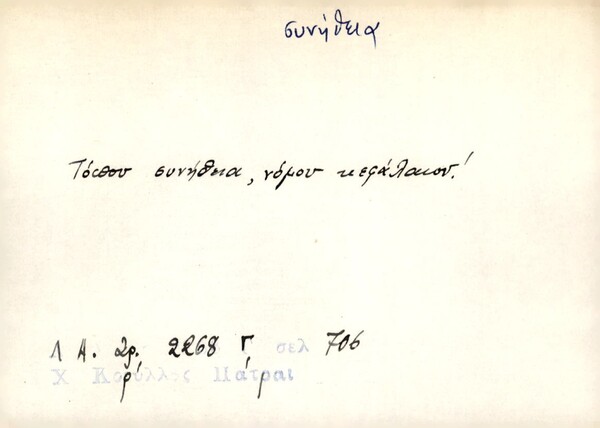 συνήθεια
Τόπου συνήθεια, νόμου κεφάλαιον!
Λ Α. 2268 Γ, σελ 706
Χ Κορύλλος Πάτραι